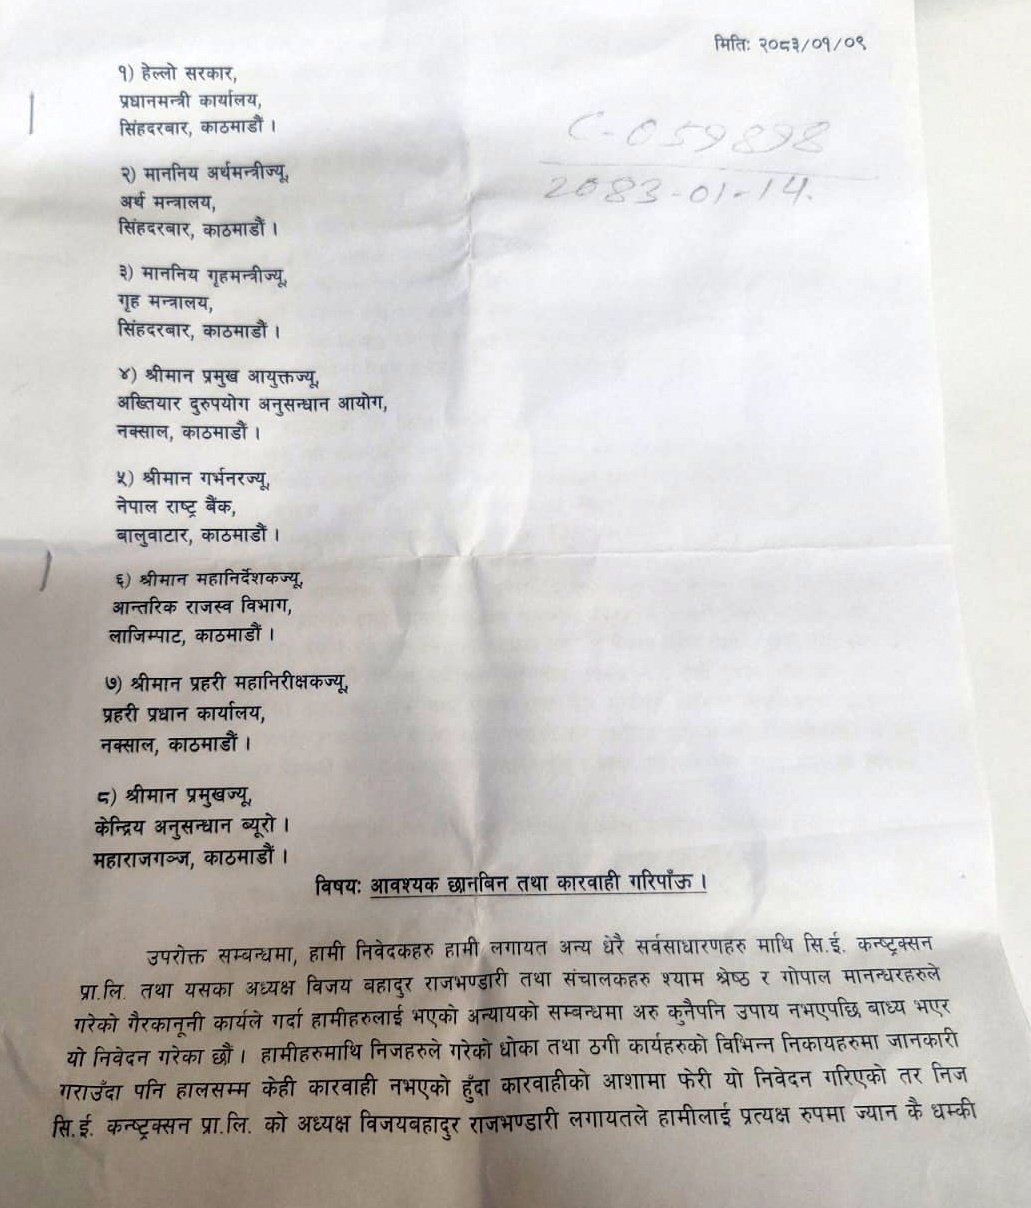 मितिः २०८३/०१/०९
C-059898
2083-01-14.
१) हेल्लो सरकार,
प्रधानमन्त्री कार्यालय,
सिंहदरबार, काठमाडौं ।
२) माननिय अर्थमन्त्रीज्यू,
अर्थ मन्त्रालय,
सिंहदरबार, काठमाडौं ।
३) माननिय गृहमन्त्रीज्यू,
गृह मन्त्रालय,
सिंहदरबार, काठमाडौं ।
४) श्रीमान प्रमुख आयुक्तज्यू,
अख्तियार दुरुपयोग अनुसन्धान आयोग,
नक्साल, काठमाडौं ।
५) श्रीमान गर्भनरज्यू,
नेपाल राष्ट्र बैंक,
बालुवाटार, काठमाडौं ।
६) श्रीमान महानिर्देशकज्यू,
आन्तरिक राजस्व विभाग,
लाजिम्पाट, काठमाडौं ।
७) श्रीमान प्रहरी महानिरीक्षकज्यू,
प्रहरी प्रधान कार्यालय,
नक्साल, काठमाडौं ।
८) श्रीमान प्रमुखज्यू,
केन्द्रिय अनुसन्धान ब्यूरो ।
महाराजगञ्ज, काठमाडौं ।
विषयः आवश्यक छानबिन तथा कारवाही गरिपाँऊ ।
उपरोक्त सम्बन्धमा, हामी निवेदकहरु हामी लगायत अन्य धेरै सर्वसाधारणहरु माथि सि.ई. कन्ष्ट्रक्सन
प्रा.लि. तथा यसका अध्यक्ष विजय बहादुर राजभण्डारी तथा संचालकहरु श्याम श्रेष्ठ र गोपाल मानन्धरहरुले
गरेको गैरकानूनी कार्यले गर्दा हामीहरुलाई भएको अन्यायको सम्बन्धमा अरु कुनैपनि उपाय नभएपछि बाध्य भएर
यो निवेदन गरेका छौं । हामीहरुमाथि निजहरुले गरेको धोका तथा ठगी कार्यहरुको विभिन्न निकायहरुमा जानकारी
गराउँदा पनि हालसम्म केही कारवाही नभएको हुँदा कारवाहीको आशामा फेरी यो निवेदन गरिएको तर निज
सि.ई. कन्ष्ट्रक्सन प्रा.लि. को अध्यक्ष विजयबहादुर राजभण्डारी लगायतले हामीलाई प्रत्यक्ष रुपमा ज्यान कै धम्की